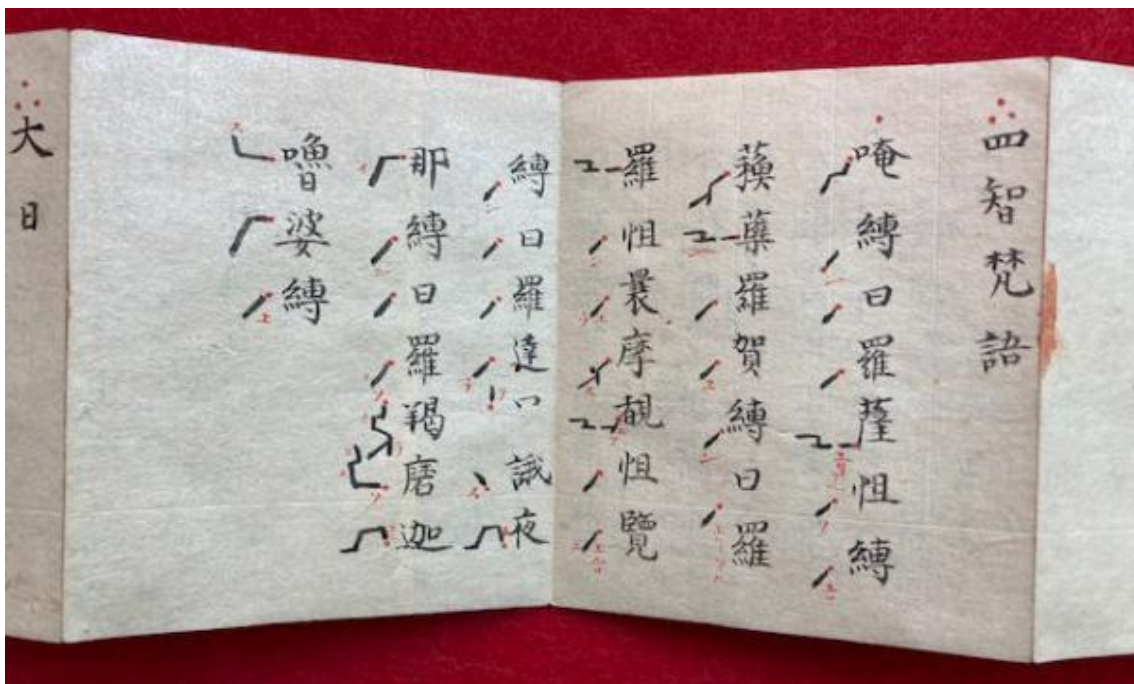 四智梵語
唵縛日羅薩怛縛
蘓蘗羅賀縛日羅
羅怛曩摩覩怛覽
縛日羅達囗誐夜
那縛日羅羯磨迦
嚕婆縛
大日